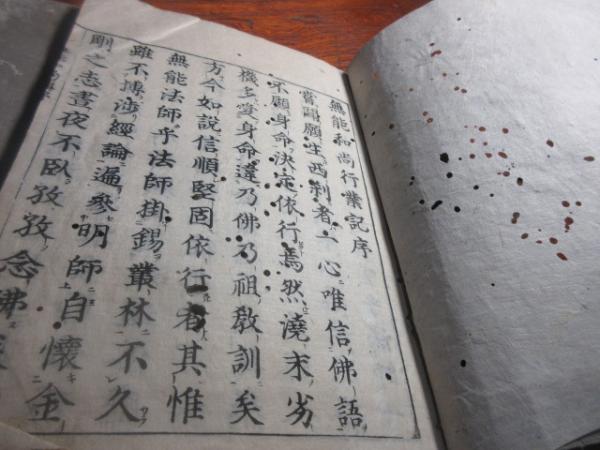 無能和尚行業記序
嘗聞願生西刹者一心唯信佛語
不顧身命決定依行焉然澆末劣
機多愛身命違乃佛乃祖敎訓矣
方今如説信順堅固依行者其惟
無能法師乎法師掛錫叢林不久
雖不博渉經論遍參明師自懷金
剛之志晝夜不臥孜孜念佛